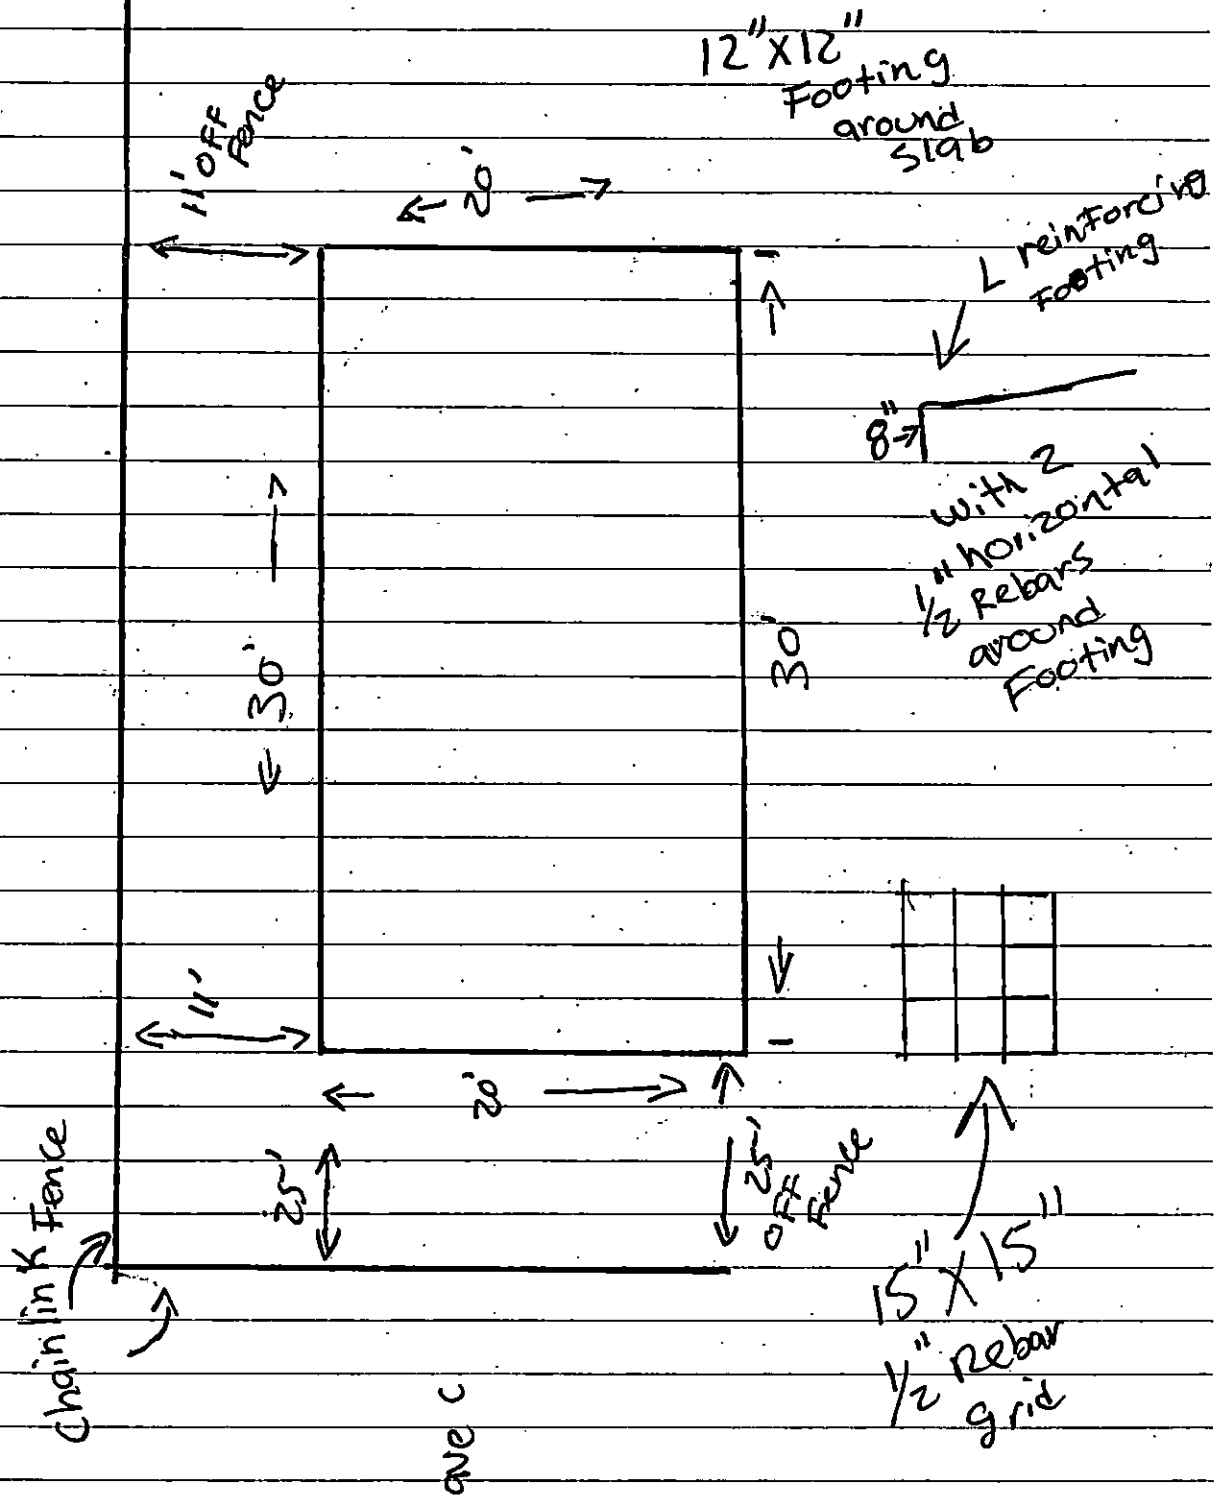 12"X12"
Footing
around
slab
11' OFF
Fence
20'
L reinforcing
Footing
8"
with 2
1/2" horizontal
Rebars
around
Footing
30'
30'
11'
20'
25'
25'
OFF
Fence
Chainlink Fence
15" X 15"
1/2" Rebar
grid
ave C